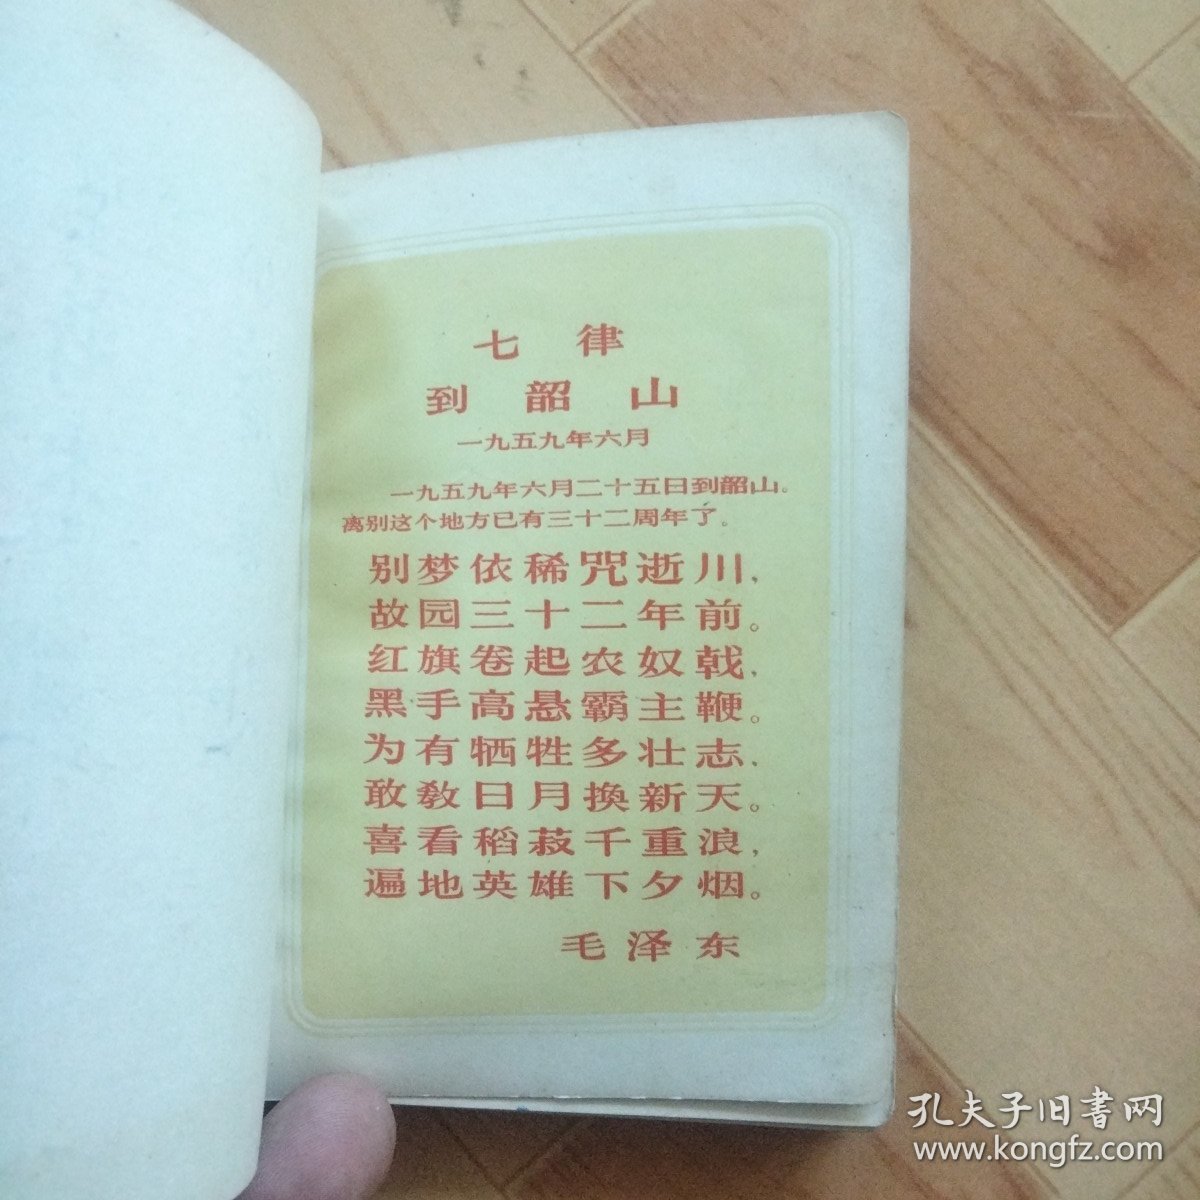 七律
到韶山
一九五九年六月
一九五九年六月二十五日到韶山。
离别这个地方已有三十二周年了。
别梦依稀咒逝川，
故园三十二年前。
红旗卷起农奴戟，
黑手高悬霸主鞭。
为有牺牲多壮志，
敢教日月换新天。
喜看稻菽千重浪，
遍地英雄下夕烟。
毛泽东
孔夫子旧書网
www.kongfz.com